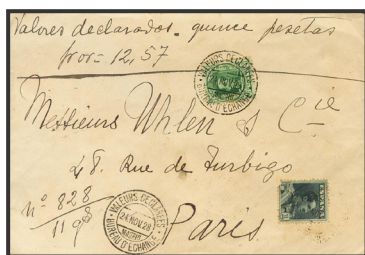 Valores declarados. quince pesetas
fros = 12,57
VALEURS DECLAREES
BUREAU D'ECHANGE
Messieurs Uhlen & Cie
48. Rue de Turbigo
nº 828
119
VALEURS DECLAREES
24 NOV 28
MADRID
BUREAU D'ECHANGE
ESPAÑA
Paris